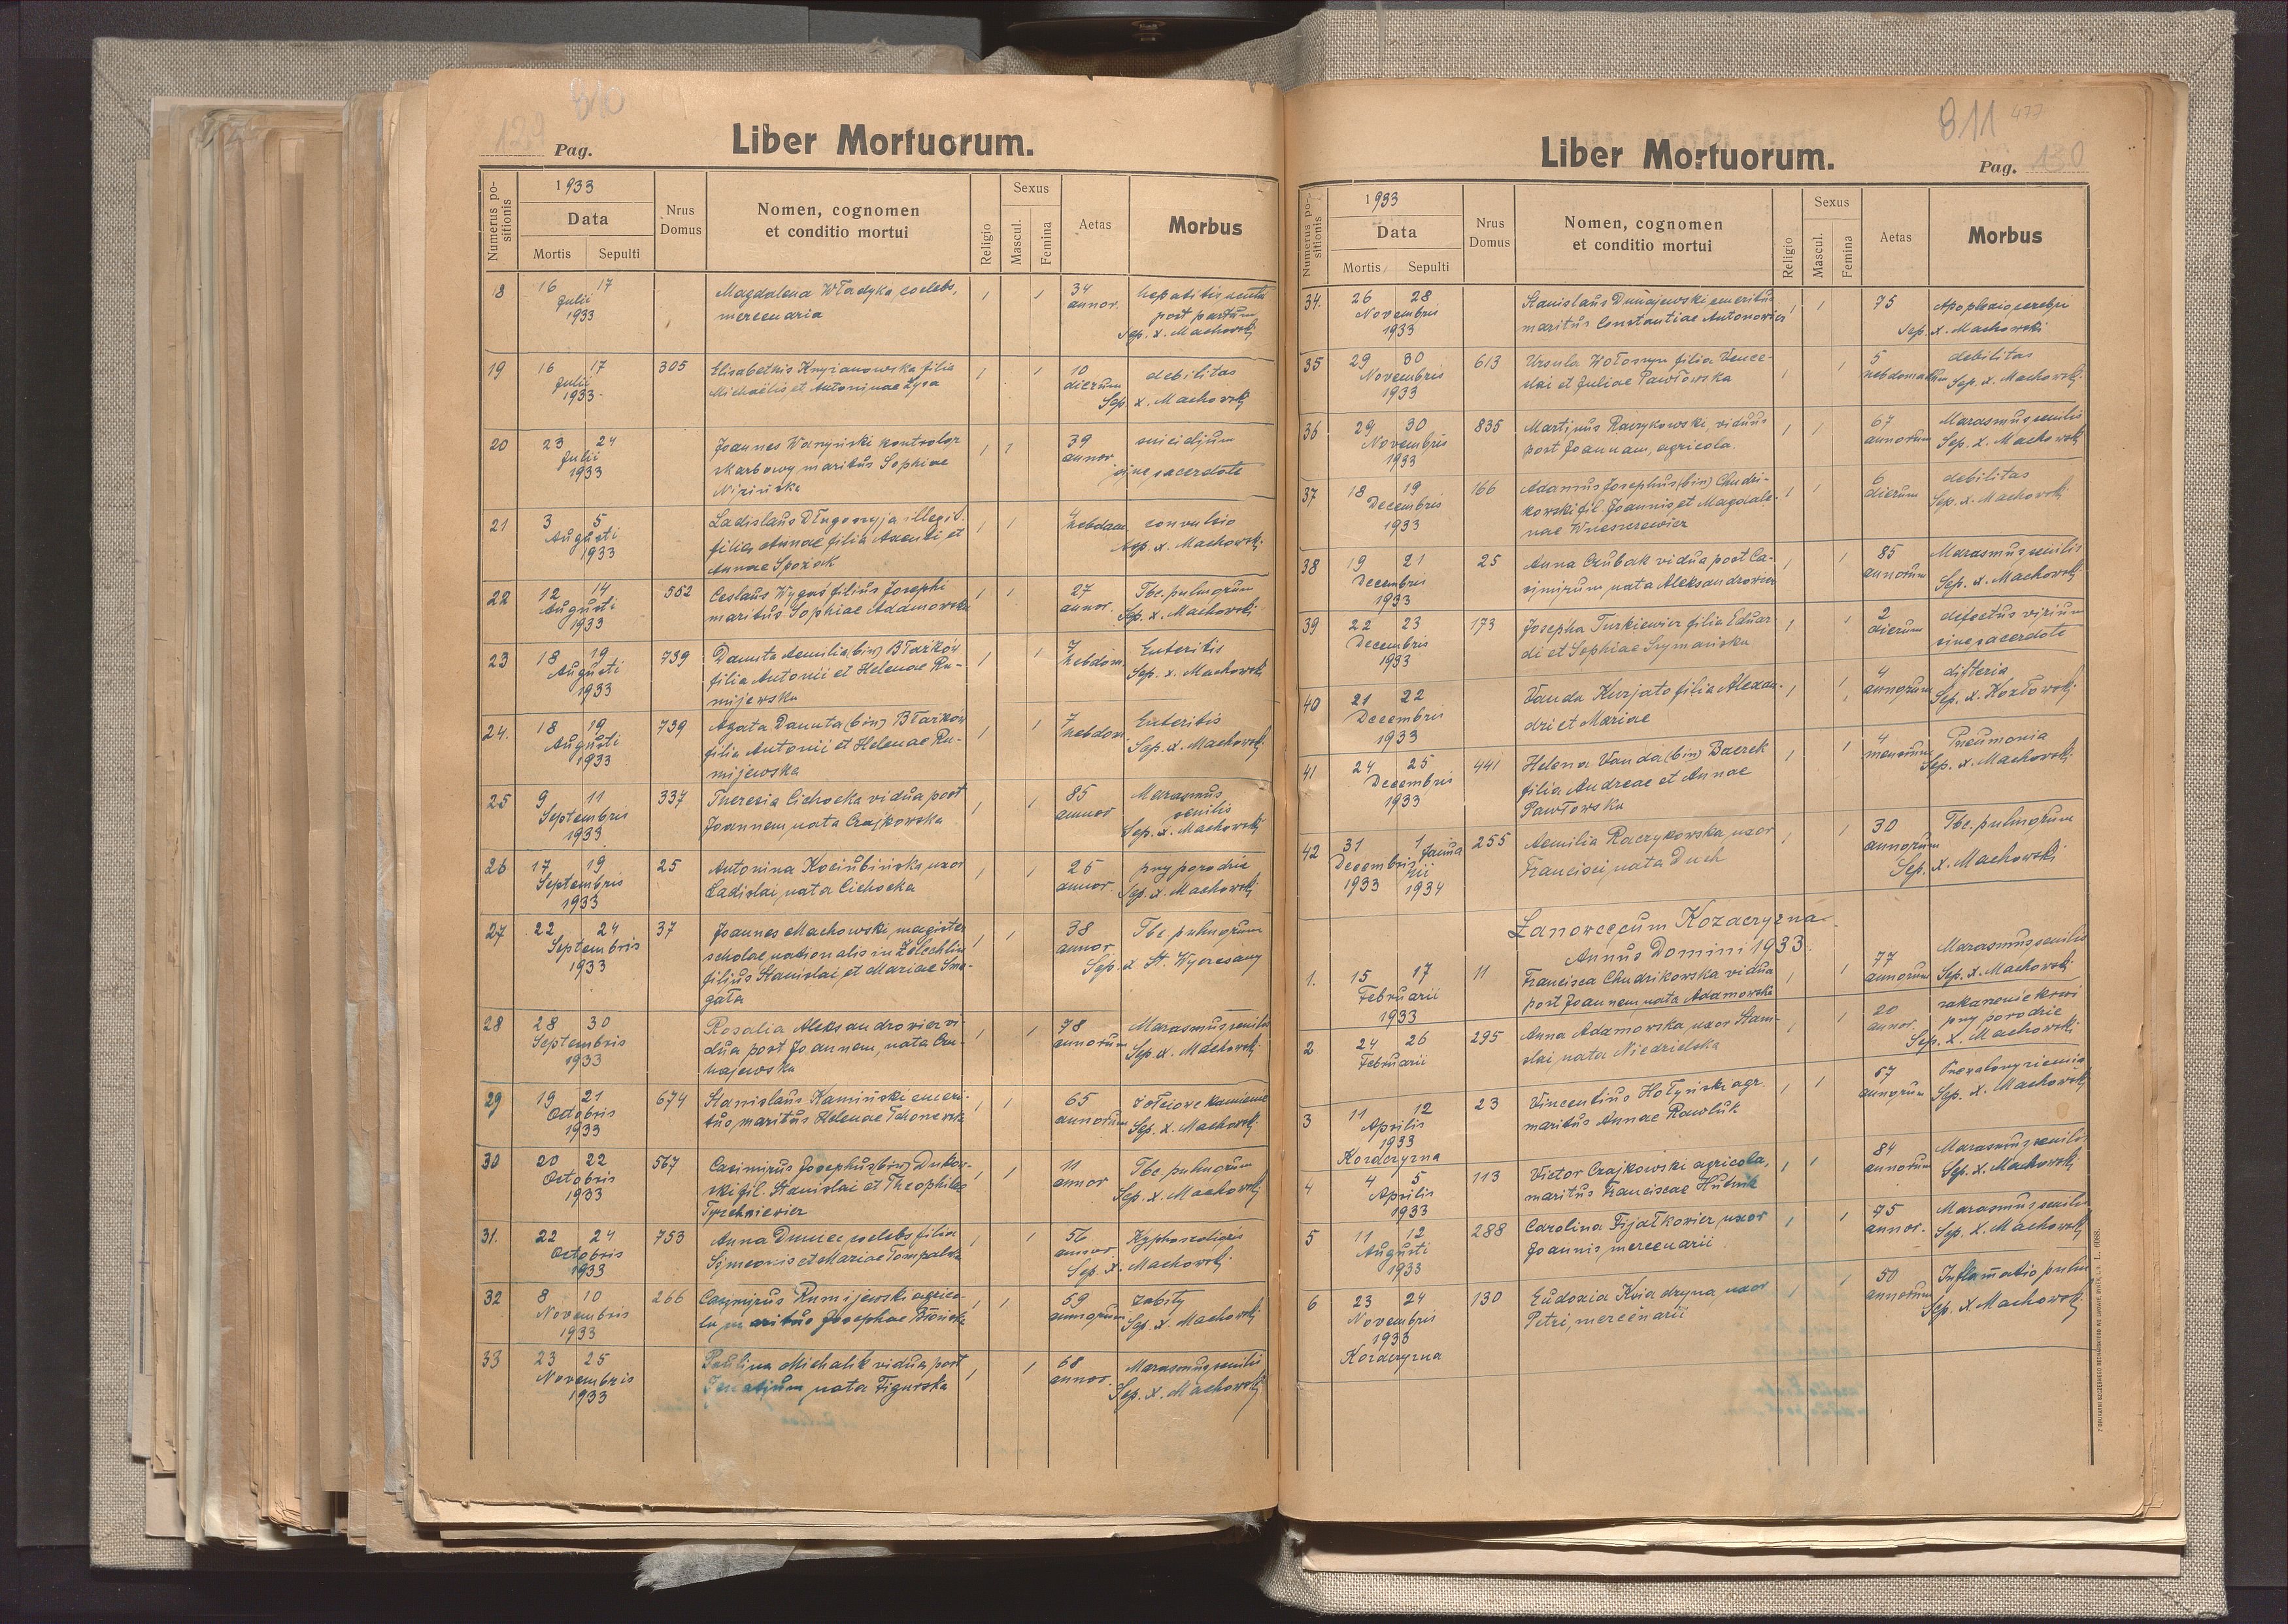 810
129
Pag.
Liber Mortuorum.
Numerus positionis
1933
Data
Mortis Sepulti
Nrus Domus
Nomen, cognomen
et conditio mortui
Religio
Sexus
Mascul. Femina
Aetas
Morbus
18 16 17 Magdalena Władyka, coelebs, 1 1 34 hepatitis acuta
Julii mercenaria annor. post partum
1933 Sep. x. Machowskj
19 16 17 305 Elisabethis Knyżanowska filia 1 1 10 debilitas
Julii Michaëlis et Antoninae Łysa dierum
1933 Sep. x. Machowskj
20 23 24 Joannes Waryński kontrolor 1 1 39 suicidjum
Julii skarbowy maritus Sophiae annor
1933 Nizińska sine sacerdote
21 3 5 Ladislaus Długoszyja illegit. 1 1 4 convulsio
Augusti filius Annae filia Axenti et hebdom
1933 Annae Spozak Sep. x. Machowskj.
22 12 14 552 Ceslaus Wygaś filius Josephi 1 1 27 Tbc. pulmorum
Augusti maritus Sophiae Adamowska annor. Sep. x. Machowskj.
1933
23 18 19 739 Danuta Aemilia (bin) Błażków 1 1 7 Enteritis
Augusti filia Antonii et Helenae Ru- hebdom. Sep. x. Machowskj
1933 mijewska
24. 18 19 739 Agata Danuta (bin) Błażków 1 1 7 Enteritis
Augusti filia Antonii et Helenae Ru- hebdom. Sep. x. Machowskj.
1933 mijewska
25 9 11 337 Theresia Cichocka vidua post 1 1 85 Marasmus
Septembris Joannem, nata Czajkowska annor senilis
1933 Sep. x. Machowskj
26 17 19 25 Antonina Kociubińska, uxor 1 1 25 przy porodzie
Septembris Ladislai, nata Cichocka annor. Sep. x. Machowskj
1933
27 22 24 37 Joannes Machowski, magister 1 1 38 Tbc pulmorum
Septembris scholae nationalis in annor
1933 filius Stanislai et Mariae Smo- Sep. x St.
gała
28 28 30 Rosalia Aleksandrowicz vi- 1 1 78 Marasmus senilis
Septembris dua post Joannem, nata annorum Sep. x. Machowskj.
1933
29 19 21 674 Stanislaus Kamiński emeri- 1 1 65 żółciowe kamienie
Octobris tus, maritus Helenae annorum Sep. x. Machowskj.
1933
30 20 22 567 Casimirus Josephus (bin) Dukow- 1 1 11 Tbc pulmorum
Octobris ski fil. Stanislai et Theophilae annor Sep. x. Machowskj
1933
31. 22 24 753 Anna Duniec coelebs filia 1 1 56
Octobris Symeonis et Mariae annor
1933 Sep. x. Machowskj.
32 8 10 266 Casimirus Rumijewski agrico- 1 1 59 zabity
Novembris la, maritus Josephae annorum Sep. x. Machowskj
1933
33 23 25 Paulina Michalik vidua post 1 1 68 Marasmus senilis
Novembris Ignatium nata Figurska annor. Sep. x. Machowskj.
1933
811 477
Liber Mortuorum.
Pag. 130
Numerus positionis
1933
Data
Mortis Sepulti
Nrus Domus
Nomen, cognomen
et conditio mortui
Religio
Sexus
Mascul. Femina
Aetas
Morbus
34. 26 28 Stanislaus Dunajewski emeritus 1 1 75 Apoplexio cerebri
Novembris maritus Constantiae Antonowicz Sep. x. Machowski
1933
35 29 30 613 Ursula Wołoszyn filia Vence- 1 1 5 debilitas
Novembris slai et Juliae Pawłowska hebdomadum Sep. x. Machowskj.
1933
36 29 30 835 Martinus Raczykowski, viduus 1 1 67 Marasmus senilis
Novembris post Joannam, agricola. annorum Sep. x. Machowskj
1933
37 18 19 166 Adamus Josephus (bin) Chudzi- 1 1 6 debilitas
Decembris kowski fil. Joannis et Magdale- dierum Sep. x. Machowskj
1933 nae
38 19 21 25 Anna Czubak vidua post Ca- 1 1 85 Marasmus senilis
Decembris simirum nata Aleksandrowicz annorum Sep. x. Machowskj
1933
39 22 23 173 Josepha Turkiewicz filia Eduar- 1 1 2 defectus virium
Decembris di et Sophiae Szymańska dierum sine sacerdote
1933
40 21 22 Vanda Kurjato filia Alexan- 1 1 4 difteria
Decembris dri et Mariae annorum Sep. x. Kozłowskj.
1933
41 24 25 441 Helena Vanda (bin) Baczek 1 1 4 Pneumonia
Decembris filia Andreae et Annae mensium Sep. x. Machowskj.
1933 Pawłowska
42 31 1 Janua 255 Aemilia Raczykowska, uxor 1 1 30 Tbc. pulmorum
Decembris rii Francisci, nata Duch annorum
1933 1934 Sep. x. Machowski
Łanowcecum Kozaczyzna.
Annus Domini 1933.
1. 15 17 11 Francisca Chudzikowska vidua 1 1 77 Marasmus senilis
Februarii post Joannem, nata Adamowska annorum Sep. x. Machowskj
1933
2 24 26 295 Anna Adamowska, uxor Stani- 1 1 20 zakażenie krwi
Februarii slai, nata Niedzielska annor. przy porodzie
Sep. X. Machowski
3 11 12 23 Vincentius Hołyński agr. 1 1 67
Aprilis maritus Annae Pawluk annorum Sep. x. Machowskj
1933
Kozaczyzna
4 4 5 113 Victor Czajkowski agricola, 1 1 84 Marasmus senilis
Aprilis maritus Franciscae Hutnik annorum Sep. x. Machowskj
1933
5 11 12 288 Carolina Fijałkowicz, uxor 1 1 75 Marasmus senilis
Augusti Joannis, mercenarii annor. Sep. X. Machowskj
1933
6 23 24 130 Eudoxia uxor 1 1 50 Inflamatio pulm
Novembris Petri, mercenarii annorum Sep. X Machowskj
1933
Kozaczyzna